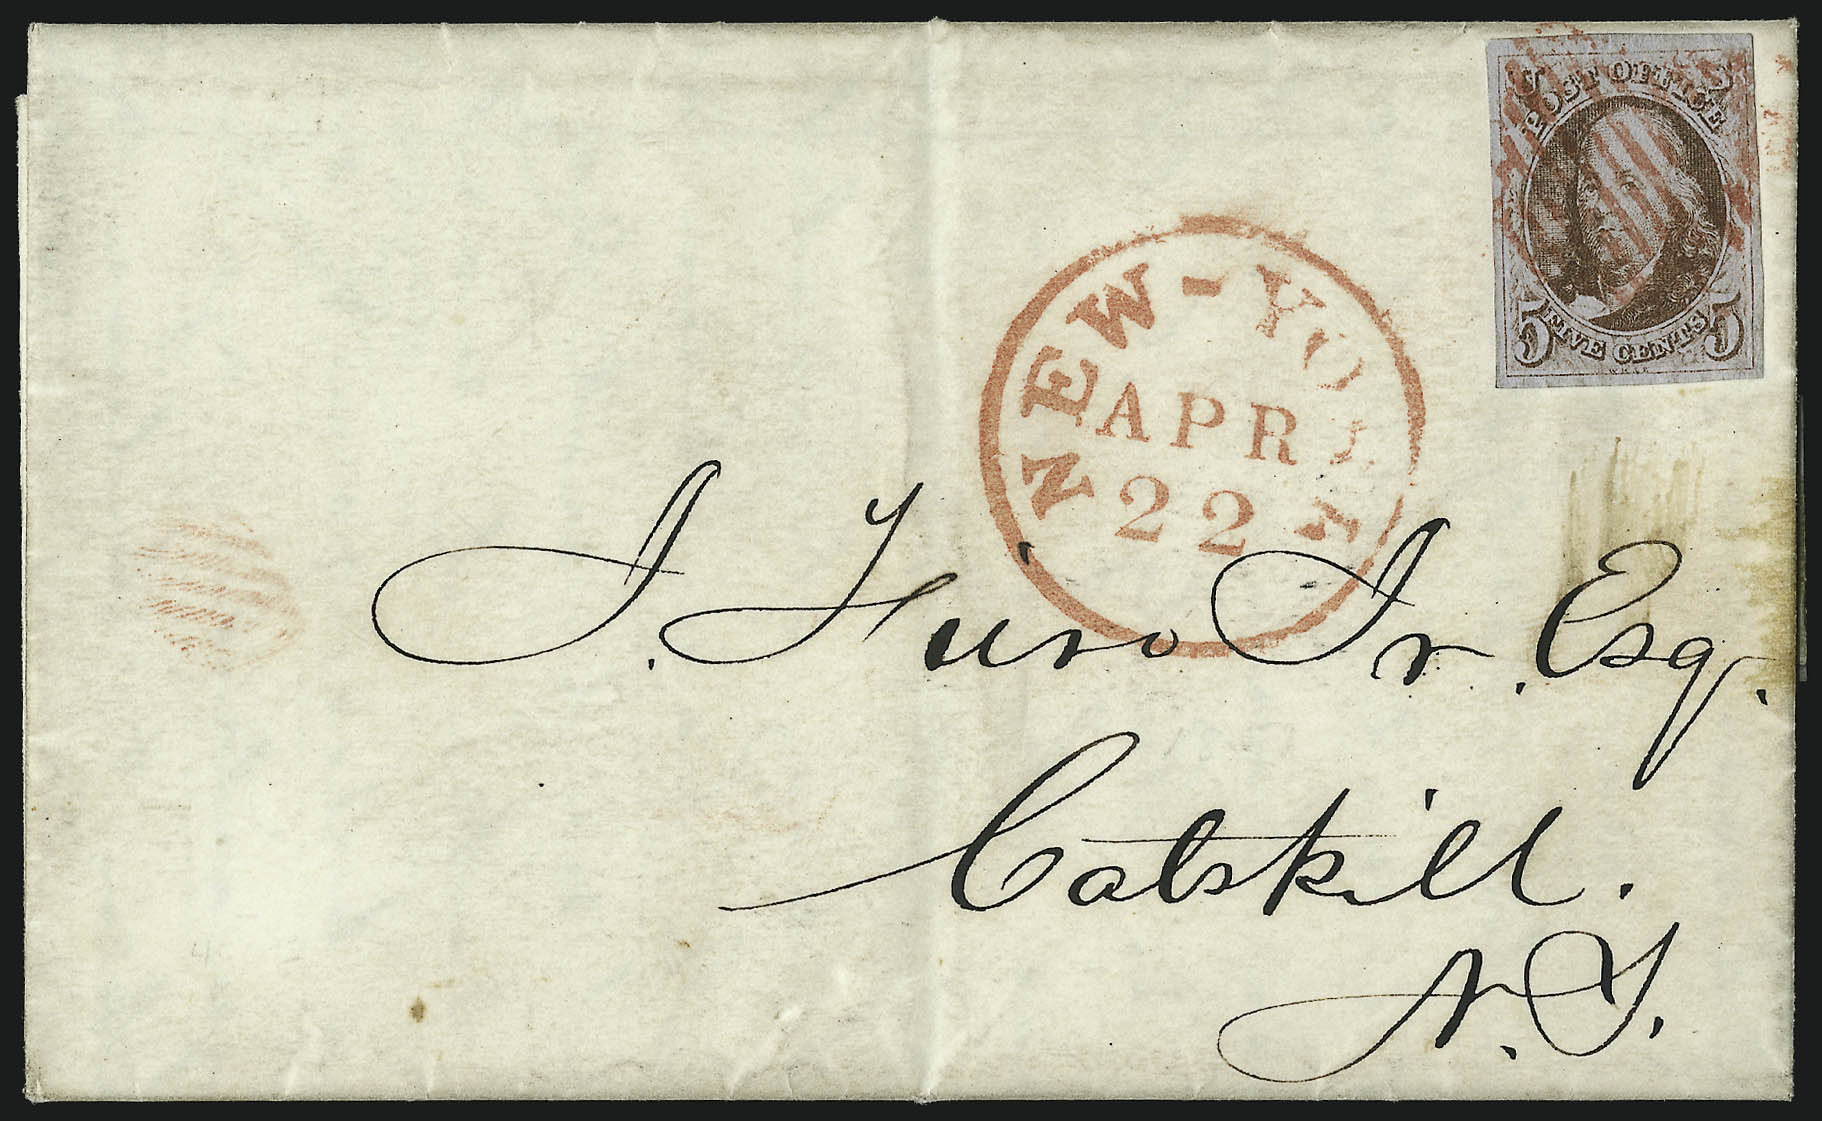 POST OFFICE
5 FIVE CENTS 5
NEW-YORK
APR
22
J. Jr. Esq.
Catskill.
N.Y.